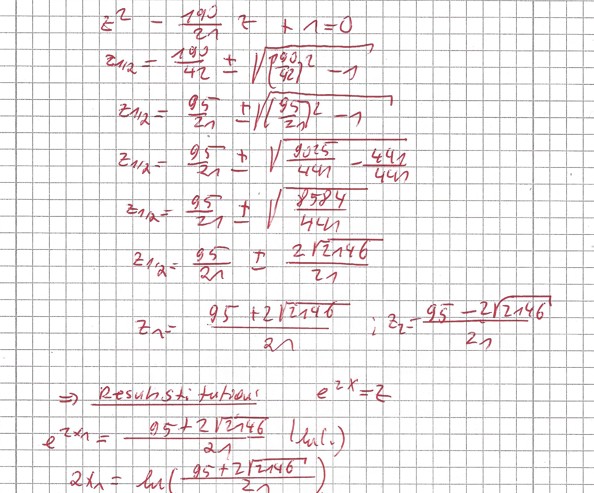 z² - 190/21 z + 1 = 0
z1/2 = 190/42 ± √((190/42)² - 1)
z1/2 = 95/21 ± √((95/21)² - 1)
z1/2 = 95/21 ± √(9025/441 - 441/441)
z1/2 = 95/21 ± √(8584/441)
z1/2 = 95/21 ± 2√2146/21
z1 = (95 + 2√2146)/21 ; z2 = (95 - 2√2146)/21
⇒ Resubstitution: e^2x = z
e^2x1 = (95 + 2√2146)/21 | ln(.)
2x1 = ln((95 + 2√2146)/21)